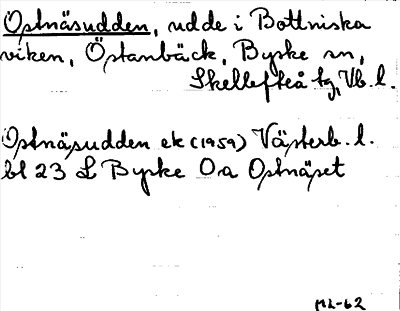 Ostnäsudden, udde i Bottniska
viken, Östanbäck, Byske sn,
Skellefteå tg, Vb. l.
Ostnäsudden ek (1959) Västerb. l.
bl 23 L Byske Oa Ostnäset
ML-62